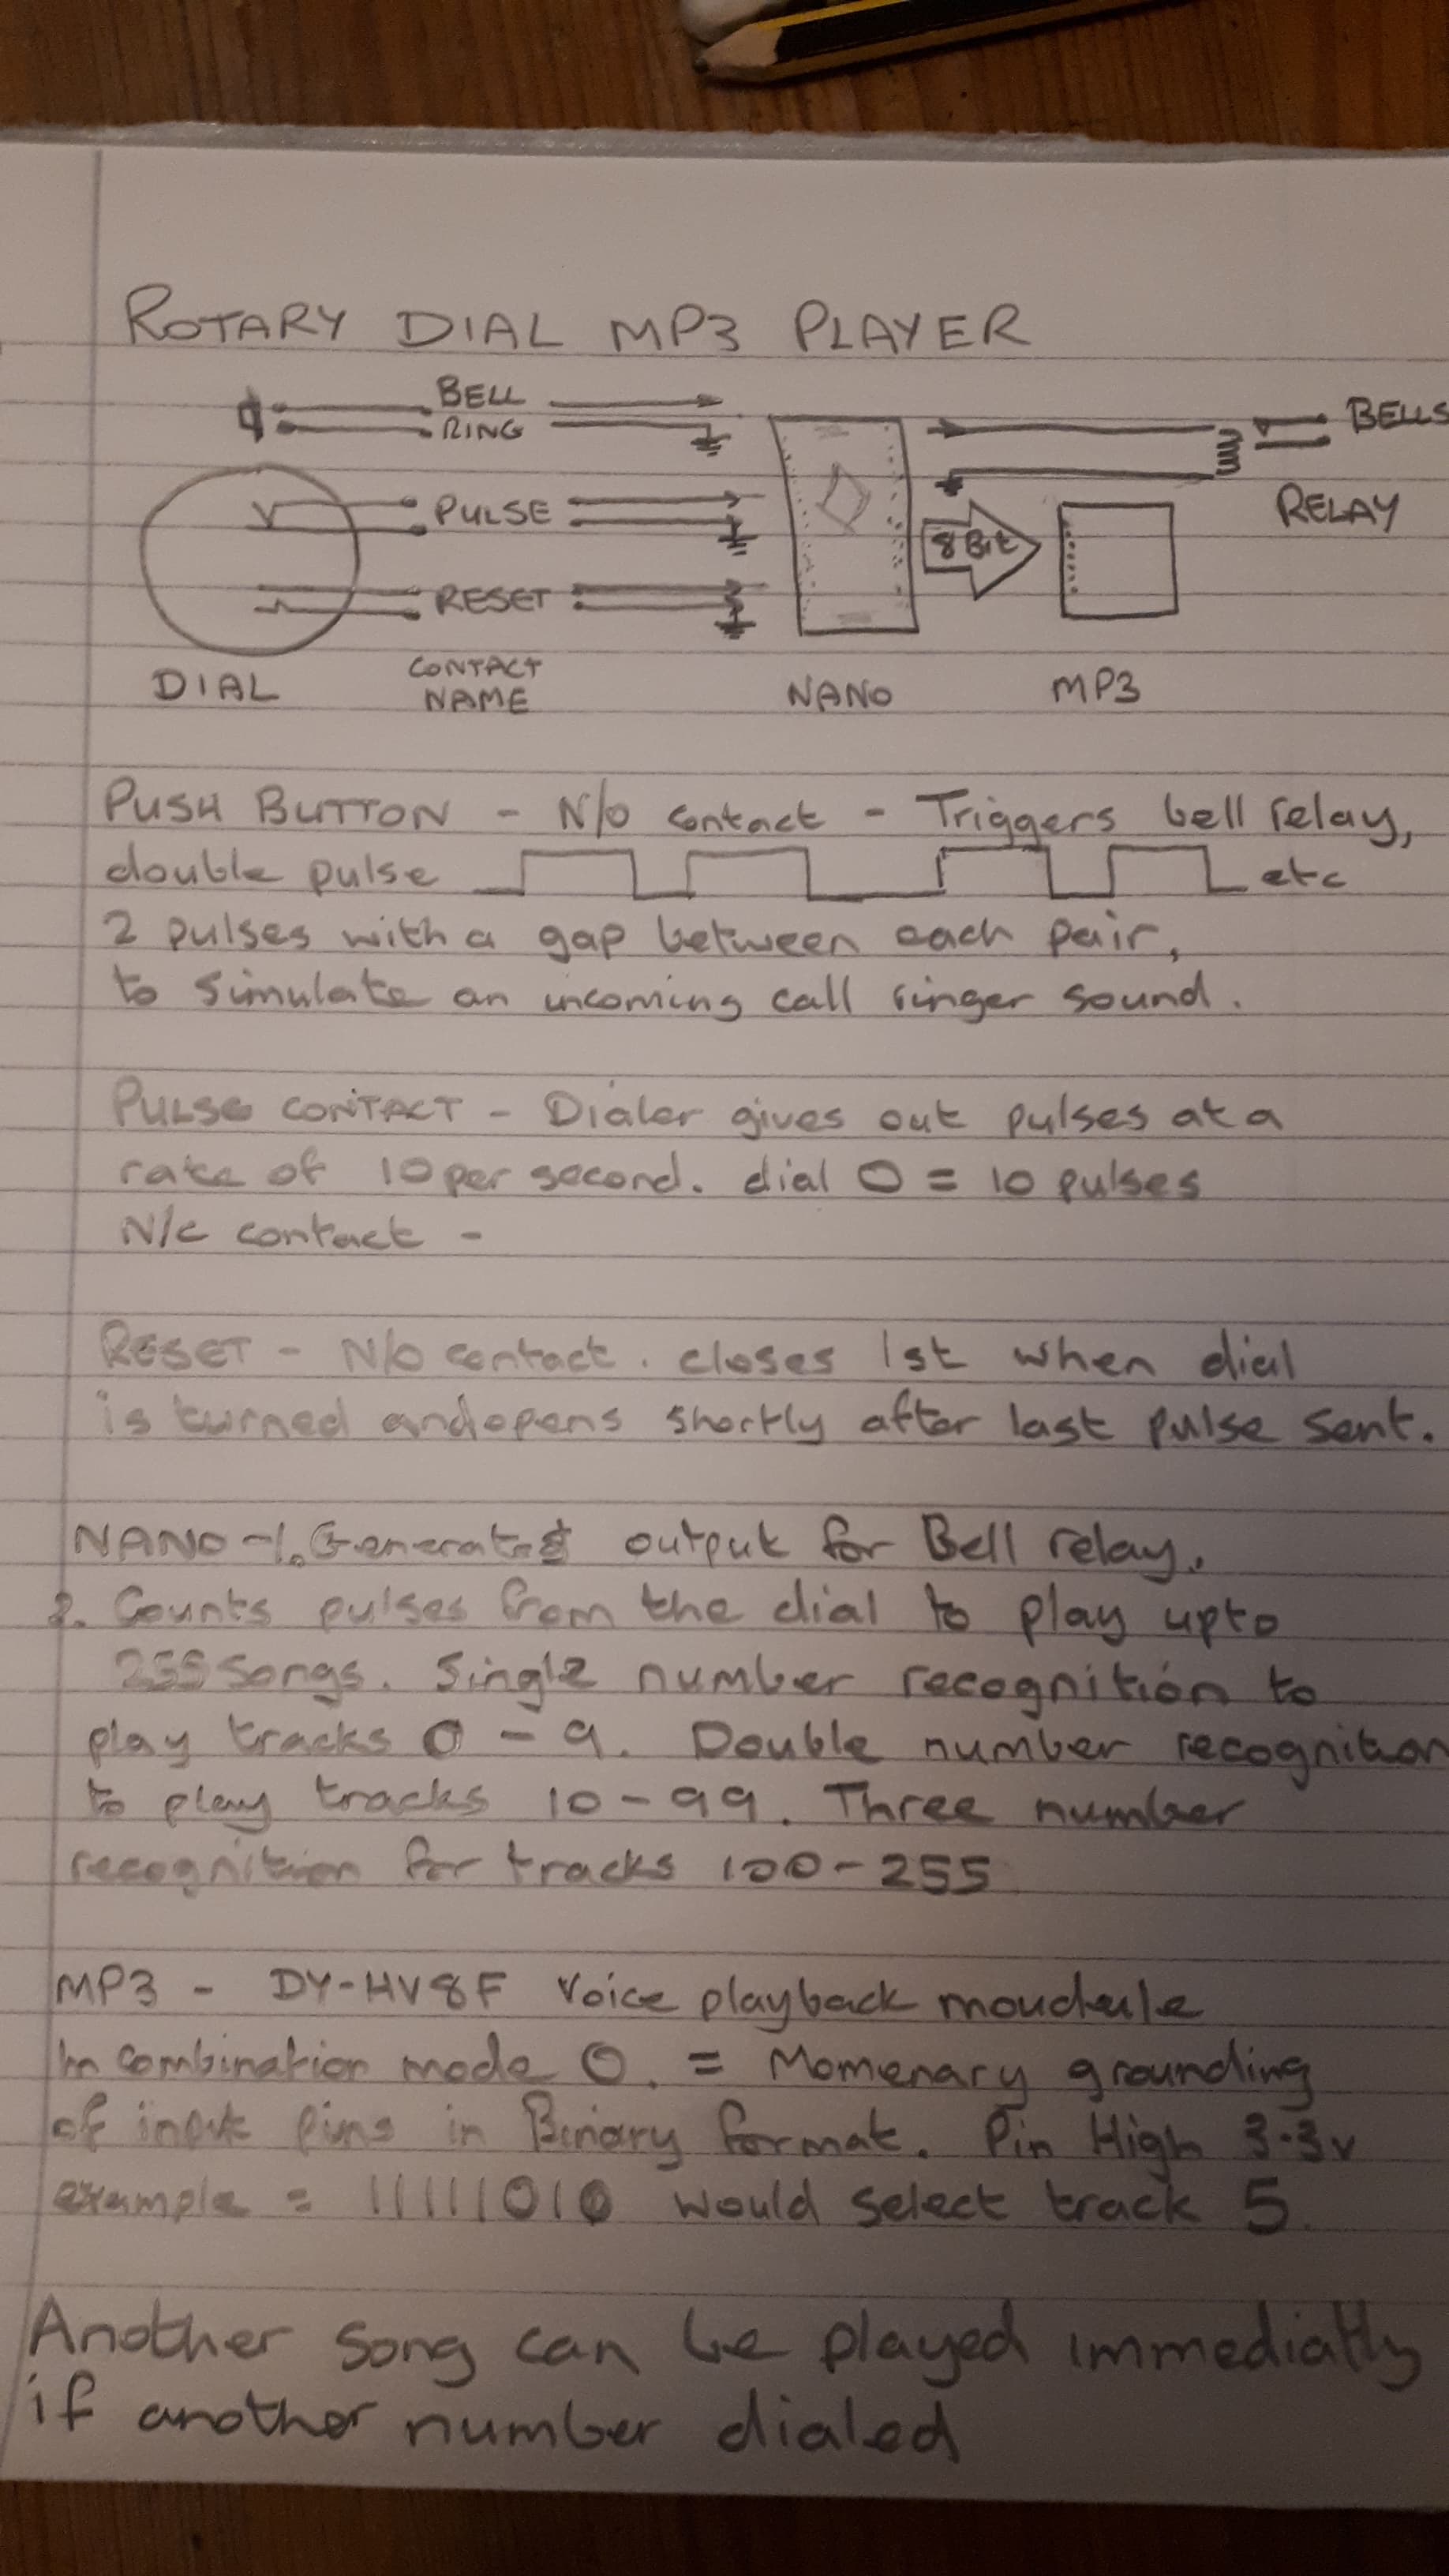 ROTARY DIAL MP3 PLAYER
BELL
RING
BELLS
PULSE
RELAY
8 Bit
RESET
DIAL
CONTACT
NAME
NANO
MP3
PUSH BUTTON - N/O contact - Triggers bell relay,
double pulse etc
2 pulses with a gap between each pair,
to simulate an incoming call ringer sound.
PULSE CONTACT - Dialer gives out pulses at a
rate of 10 per second. dial 0 = 10 pulses
N/C contact -
RESET - N/O contact. closes 1st when dial
is turned and opens shortly after last pulse sent.
NANO - 1. Generates output for Bell relay.
2. Counts pulses from the dial to play upto
255 songs. Single number recognition to
play tracks 0 - 9. Double number recognition
to play tracks 10 - 99. Three number
recognition for tracks 100 - 255
MP3 - DY-HV8F Voice playback moudule
In combination mode 0. = Momenary grounding
of input pins in Binary format. Pin High 3.3v
example = 11111010 would select track 5.
Another song can be played immediatly
if another number dialed